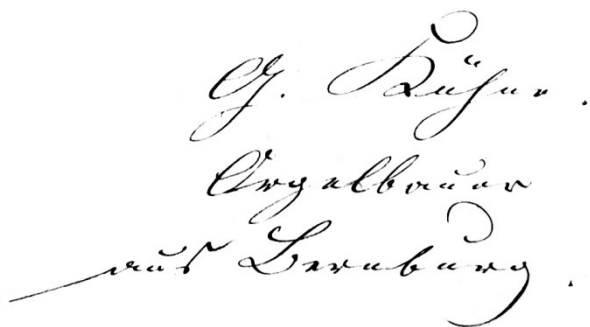 G. Kühne.
Orgelbauer
aus Bernburg.